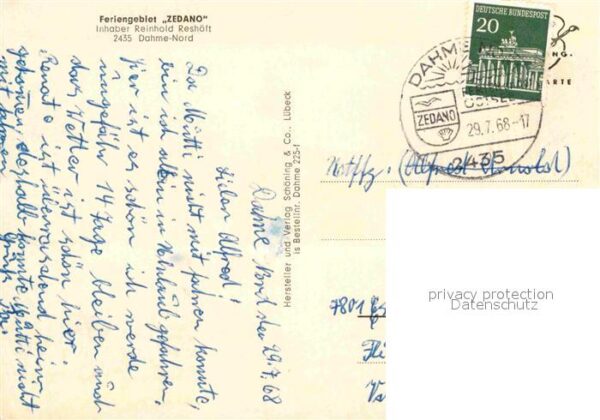 Feriengebiet „ZEDANO"
Inhaber Reinhold Reshöft
2435 Dahme-Nord
Dahme Nord den 29.7.68
Lieber Alfred!
Da Mutti nicht mit fahren konnte,
bin ich allein in Urlaub gefahren.
Hier ist es schön ich werde
ungefähr 14 Tage bleiben und
das Wetter ist schön hier.
Renate ist Sonnabend heim
gekommen, deshalb konnte Mutti nicht
mit fahren.
Hersteller und Verlag Schöning & Co., Lübeck
is Bestellnr. Dahme 225-f
DEUTSCHE BUNDESPOST
20
DAHME
OSTSEE
ZEDANO
29.7.68-17
2435
ARTE
(Alfred
7801
privacy protection
Datenschutz